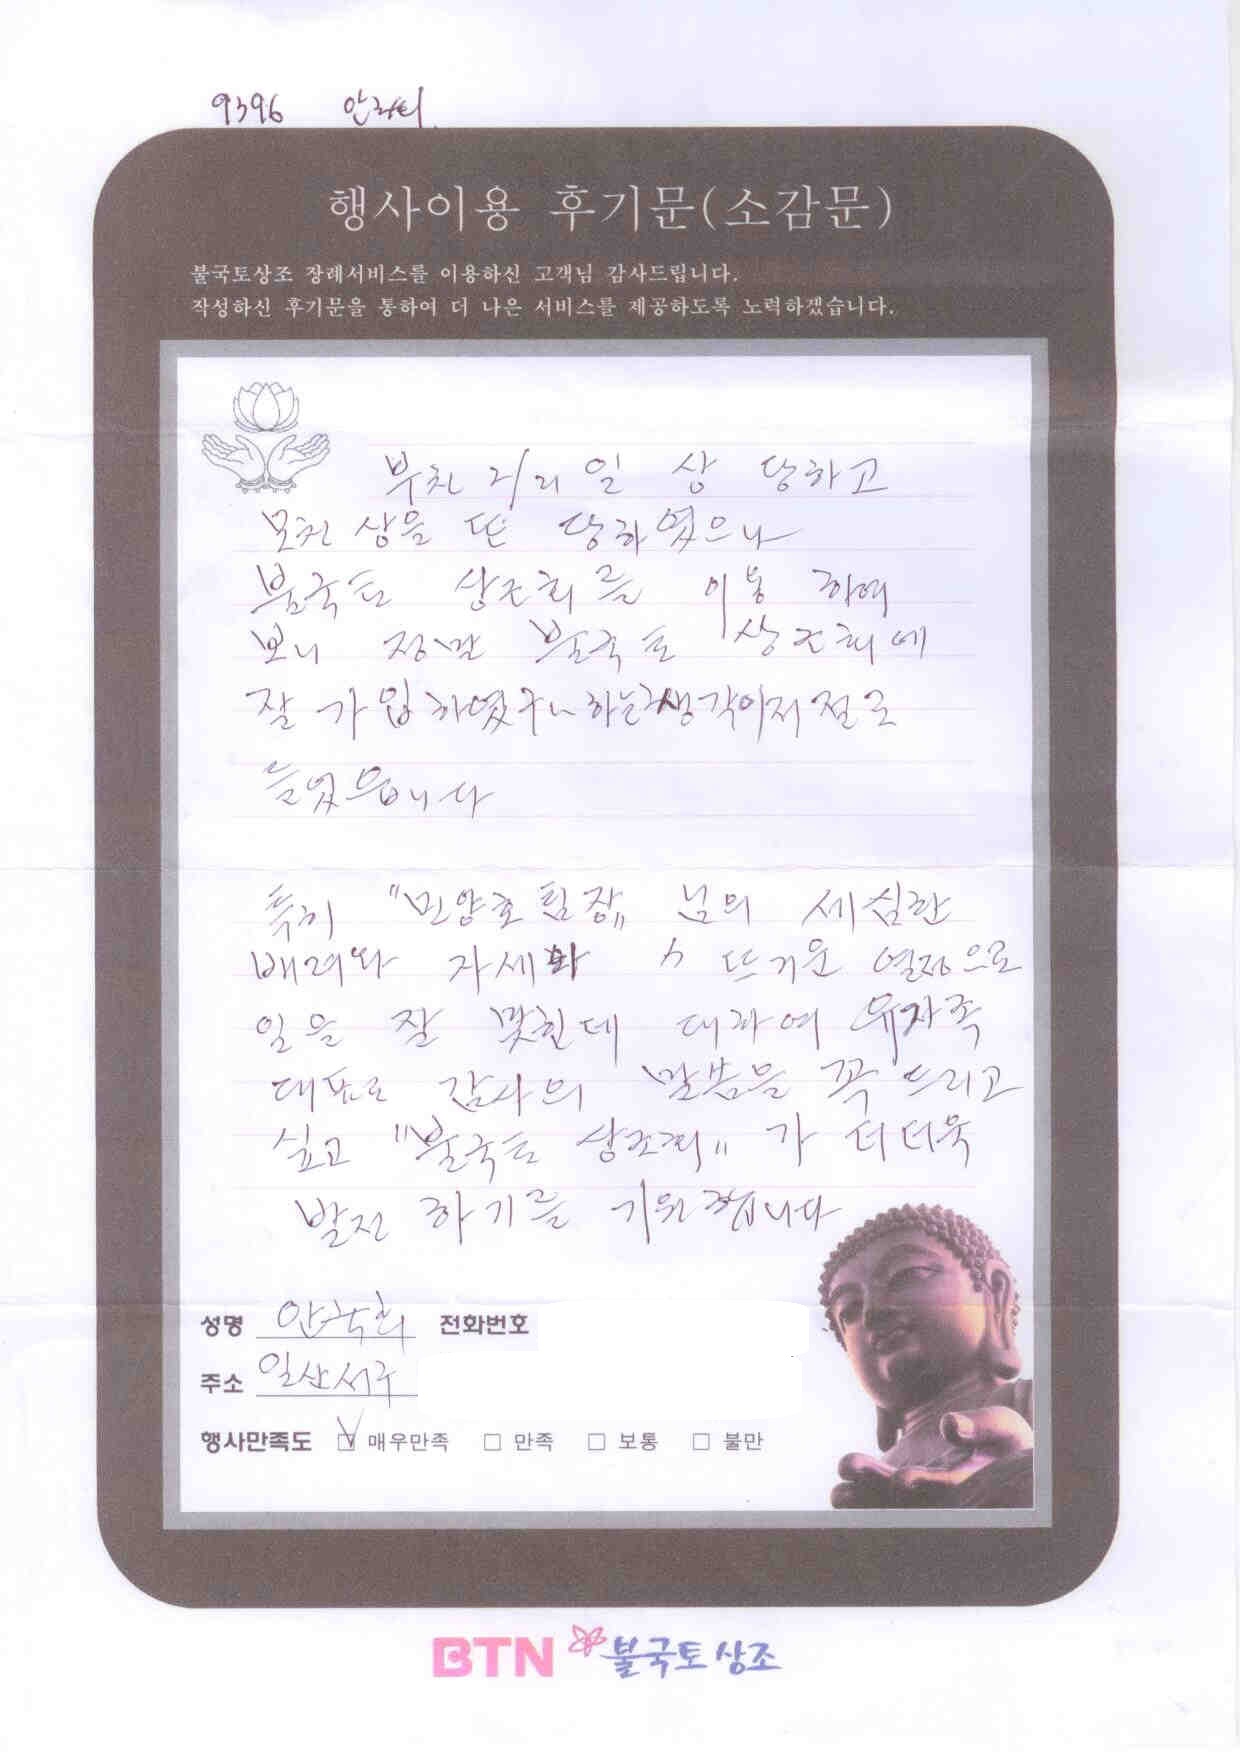 9396 안국희
행사이용 후기문(소감문)
불국토상조 장례서비스를 이용하신 고객님 감사드립니다.
작성하신 후기문을 통하여 더 나은 서비스를 제공하도록 노력하겠습니다.
부친 2/21일 상 당하고
모친 상을 또 당하였으나
불국토 상조회를 이용 하여
보니 정말 불국토 상조회에
잘 가입하였구나 하는 생각이 저절로
들었읍니다
특히 "민양호 팀장" 님의 세심한
배려와 자세와 뜨거운 열정으로
일을 잘 맞힌데 대하여 유가족
대표로 감사의 말씀을 꼭 드리고
싶고 "불국토 상조회" 가 더더욱
발전 하기를 기원합니다
성명 안국희 전화번호
주소 일산서구
행사만족도 ☑ 매우만족 □ 만족 □ 보통 □ 불만
BTN 불국토상조